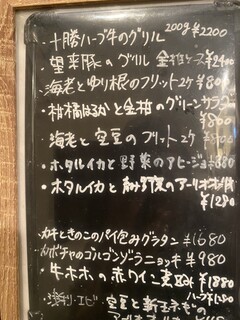 ・十勝ハーブ牛のグリル 200g ¥2200
・望来豚のグリル ¥2400
・海老とゆり根のフリット2ケ ¥800
・柑橘はるかと金柑のグリーンサラダ
¥800
・海老と空豆のフリット2ケ
・ホタルイカと野菜のアヒージョ ¥880
・ホタルイカと のアーリオオーリオ
¥1280
・カキときのこのパイ包みグラタン ¥1680
カボチャのゴルゴンゾラニョッキ ¥980
・牛ホホの赤ワイン煮込み ¥1880
ハーフ ¥1180
エビ 空豆と新玉ネギの